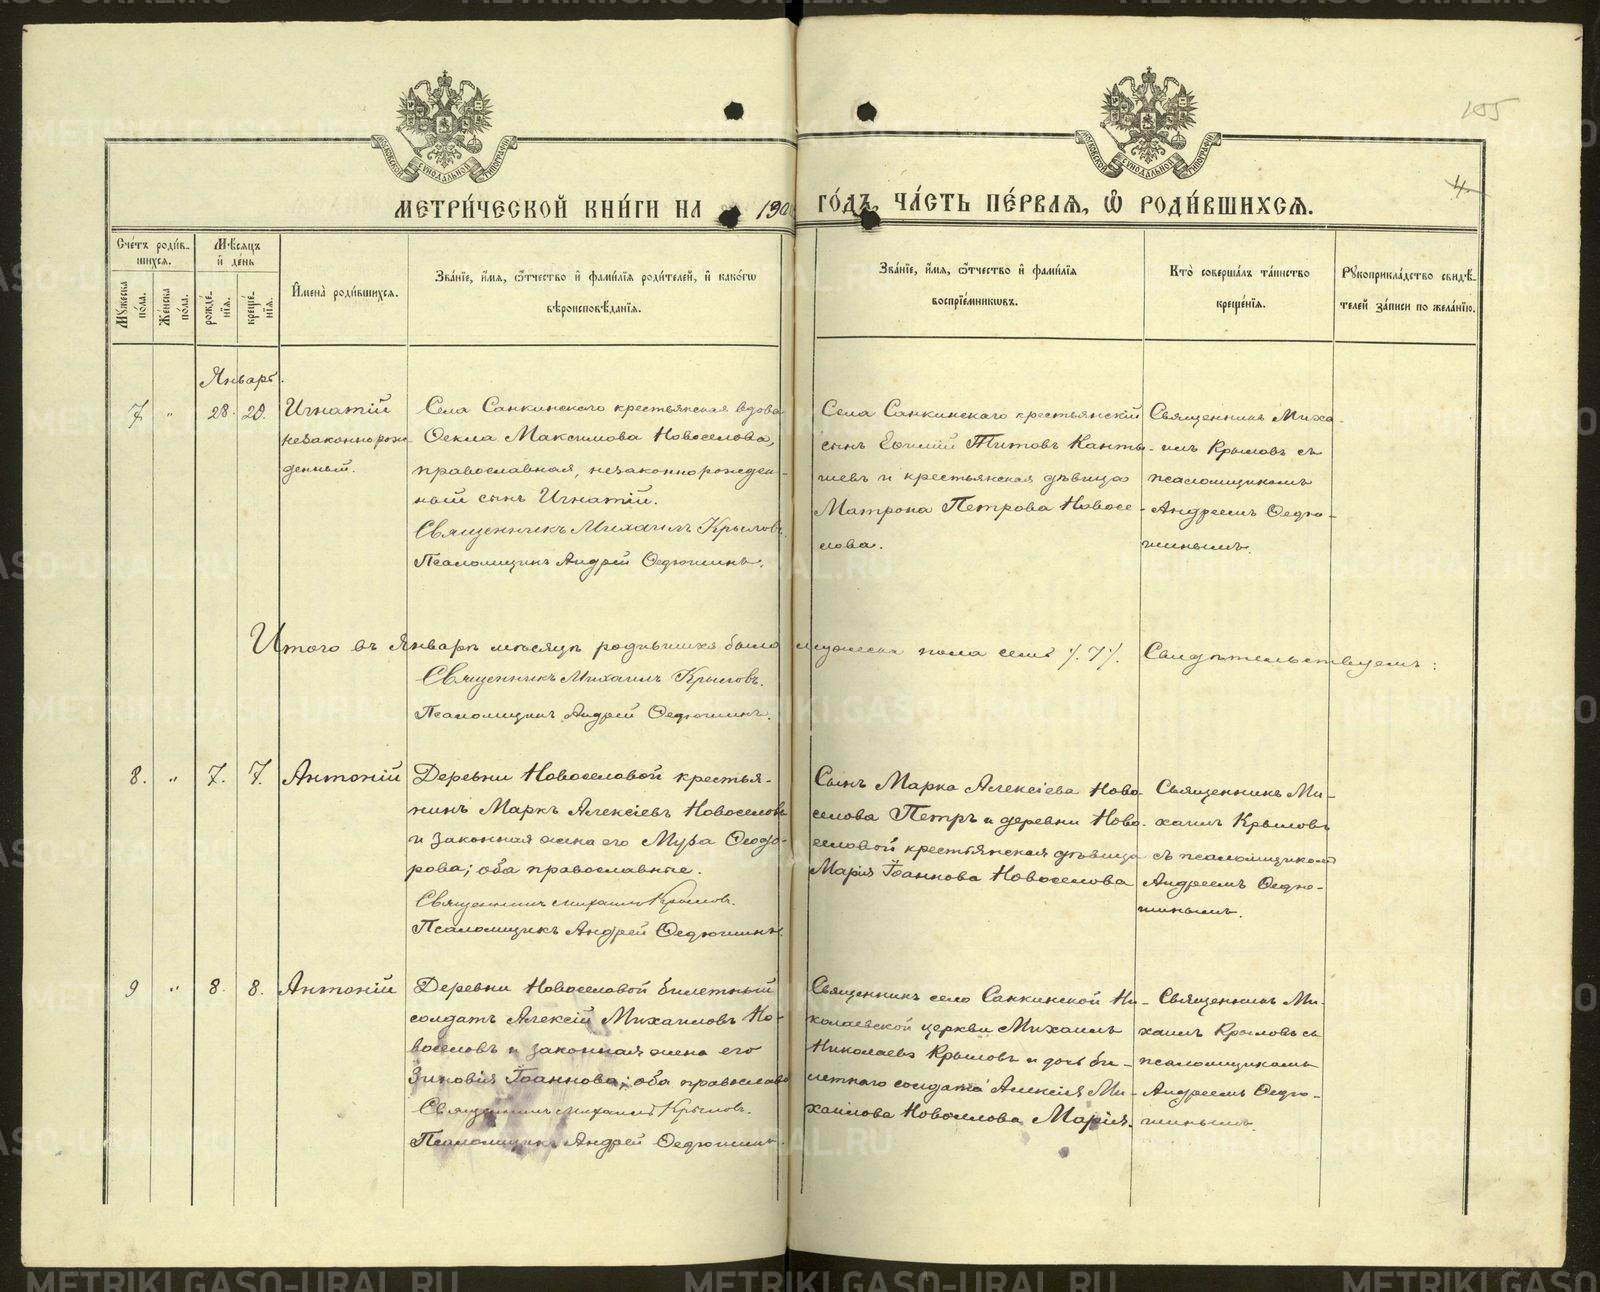 155
4
МОСКОВСКОЙ СѴНОДАЛЬНОЙ ТИПОГРАФІИ
МОСКОВСКОЙ СѴНОДАЛЬНОЙ ТИПОГРАФІИ
МЕТРИ́ЧЕСКОЙ КНИ́ГИ НА 190 ГО́ДЪ, ЧА́СТЬ ПЕ́РВАЯ, Ѡ҆ РОДИ́ВШИХСЯ.
Сче́тъ роди́в-
шихся.
Му́жеска по́ла.
Же́нска по́ла.
Мѣ́сяцъ
и҆ де́нь
рожде́-
нїя.
креще́-
нїя.
И҆мена̀ роди́вшихся.
Зва́нїе, и҆́мя, ѻ҆́тчество и҆ фами́лїя роди́телей, и҆ како́гѡ
вѣроисповѣ́данїя.
Зва́нїе, и҆́мя, ѻ҆́тчество и҆ фами́лїя
воспрїе́мникѡвъ.
Кто̀ соверша́лъ та́инство
креще́нїя.
Рꙋкоприкла́дство свидѣ́-
телей за́писи по жела́нїю.
Январь.
7 " 28. 29. Игнатій
незаконнорож-
денный.
Села Санкинскаго крестьянская вдова
Ѳекла Максимова Новоселова,
православная, незаконнорожден-
ный сынъ Игнатій.
Священникъ Михаилъ Крыловъ.
Псаломщикъ Андрей Ѳедюшинъ.
Села Санкинскаго крестьянскій
сынъ Евѳимій Титовъ Канты-
шевъ и крестьянская дѣвица
Матрона Петрова Новосе-
лова.
Священникъ Миха-
илъ Крыловъ съ
псаломщикомъ
Андреемъ Ѳедю-
шинымъ.
Итого въ Январѣ мѣсяцѣ родившихся было мужеска пола семь ./. 7 ./. Свидѣтельствуемъ:
Священникъ Михаилъ Крыловъ.
Псаломщикъ Андрей Ѳедюшинъ.
8. " 7. 7. Антоній
Деревни Новоселовой крестья-
нинъ Маркъ Алексіевъ Новоселовъ
и законная жена его Мура Ѳеодо-
рова; оба православные.
Священникъ Михаилъ Крыловъ.
Псаломщикъ Андрей Ѳедюшинъ.
Сынъ Марка Алексіева Ново-
селова Петръ и деревни Ново-
селовой крестьянская дѣвица
Марія Іоаннова Новоселова
Священникъ Ми-
хаилъ Крыловъ
съ псаломщикомъ
Андреемъ Ѳедю-
шинымъ.
9 " 8. 8. Антоній
Деревни Новоселовой билетный
солдатъ Алексій Михаиловъ Но-
воселовъ и законная жена его
Зиновія Іоаннова; оба православ.
Священникъ Михаилъ Крыловъ.
Псаломщикъ Андрей Ѳедюшинъ.
Священникъ село Санкинской Ни-
колаевской церкви Михаилъ
Николаевъ Крыловъ и дочь би-
летнаго солдата Алексія Ми-
хаилова Новоселова Марія.
Священникъ Ми-
хаилъ Крыловъ съ
псаломщикомъ
Андреемъ Ѳедю-
шинымъ.
METRIKI.GASO-URAL.RU